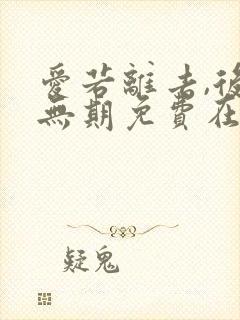 愛若離去,後
無期免費在
疑鬼